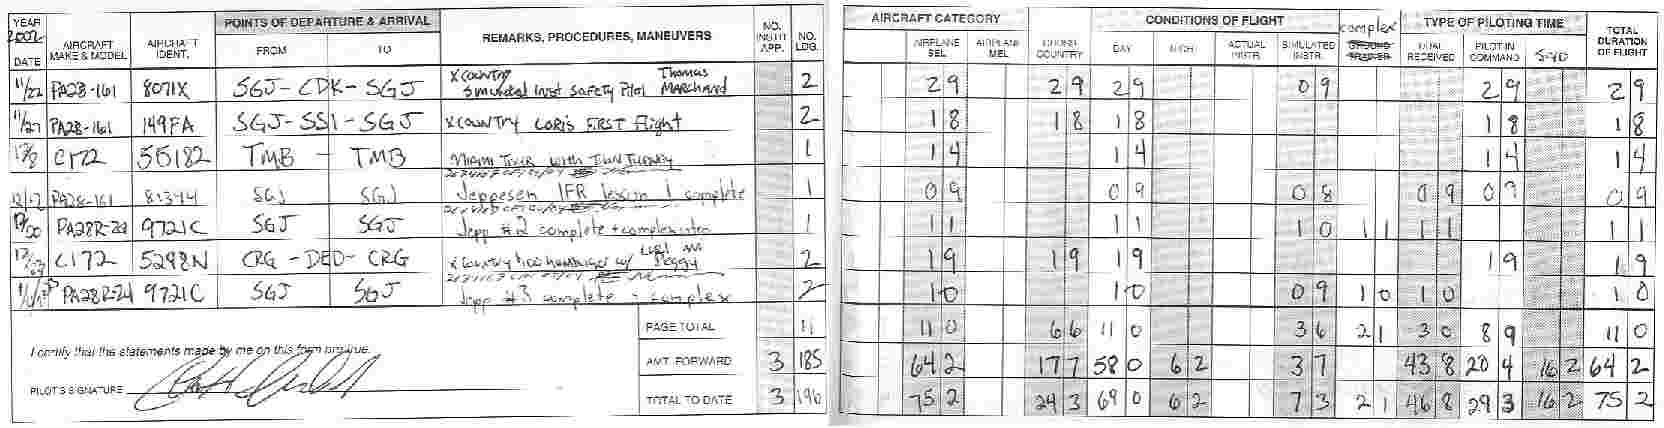 YEAR 2002 DATE AIRCRAFT MAKE & MODEL AIRCRAFT IDENT. POINTS OF DEPARTURE & ARRIVAL FROM TO REMARKS, PROCEDURES, MANEUVERS NO. INSTR APP. NO. LDG. AIRCRAFT CATEGORY AIRPLANE SEL AIRPLANE MEL CROSS COUNTRY CONDITIONS OF FLIGHT DAY NIGHT ACTUAL INSTR. SIMULATED INSTR. complex TYPE OF PILOTING TIME DUAL RECEIVED PILOT IN COMMAND TOTAL DURATION OF FLIGHT
11/22 PA28-161 8071X SGJ - CDK - SGJ X COUNTRY Simulated Inst Safety Pilot Thomas Marchand 2 2 9 2 9 2 9 0 9 2 9 2 9
11/27 PA28-161 149FA SGJ - SSI - SGJ X COUNTRY LORI'S FIRST Flight 2 1 8 1 8 1 8 1 8 1 8
12/8 C172 55182 TMB - TMB Miami Tour with 1 1 4 1 4 1 4 1 4
12/17 PA28-161 SGJ SGJ Jeppesen IFR lesson 1 complete 1 0 9 0 9 0 8 0 9 0 9 0 9
12/20 9721C SGJ SGJ Jepp #2 complete + complex 1 1 1 1 1 1 0 1 1 1 1 1 1
C172 5298N CRG - DED - CRG X Country hamburger w/ Lori and Peggy 2 1 9 1 9 1 9 1 9 1 9
PA28R-24 9721C SGJ SGJ Jepp #3 complete - complex 2 1 0 1 0 0 9 1 0 1 0 1 0
PAGE TOTAL 11 11 0 6 6 11 0 3 6 2 1 3 0 8 9 11 0
I certify that the statements made by me on this form are true.
AMT. FORWARD 3 185 64 2 17 7 58 0 6 2 3 7 43 8 20 4 16 2 64 2
PILOT'S SIGNATURE
TOTAL TO DATE 3 196 75 2 24 3 69 0 6 2 7 3 2 1 46 8 29 3 16 2 75 2